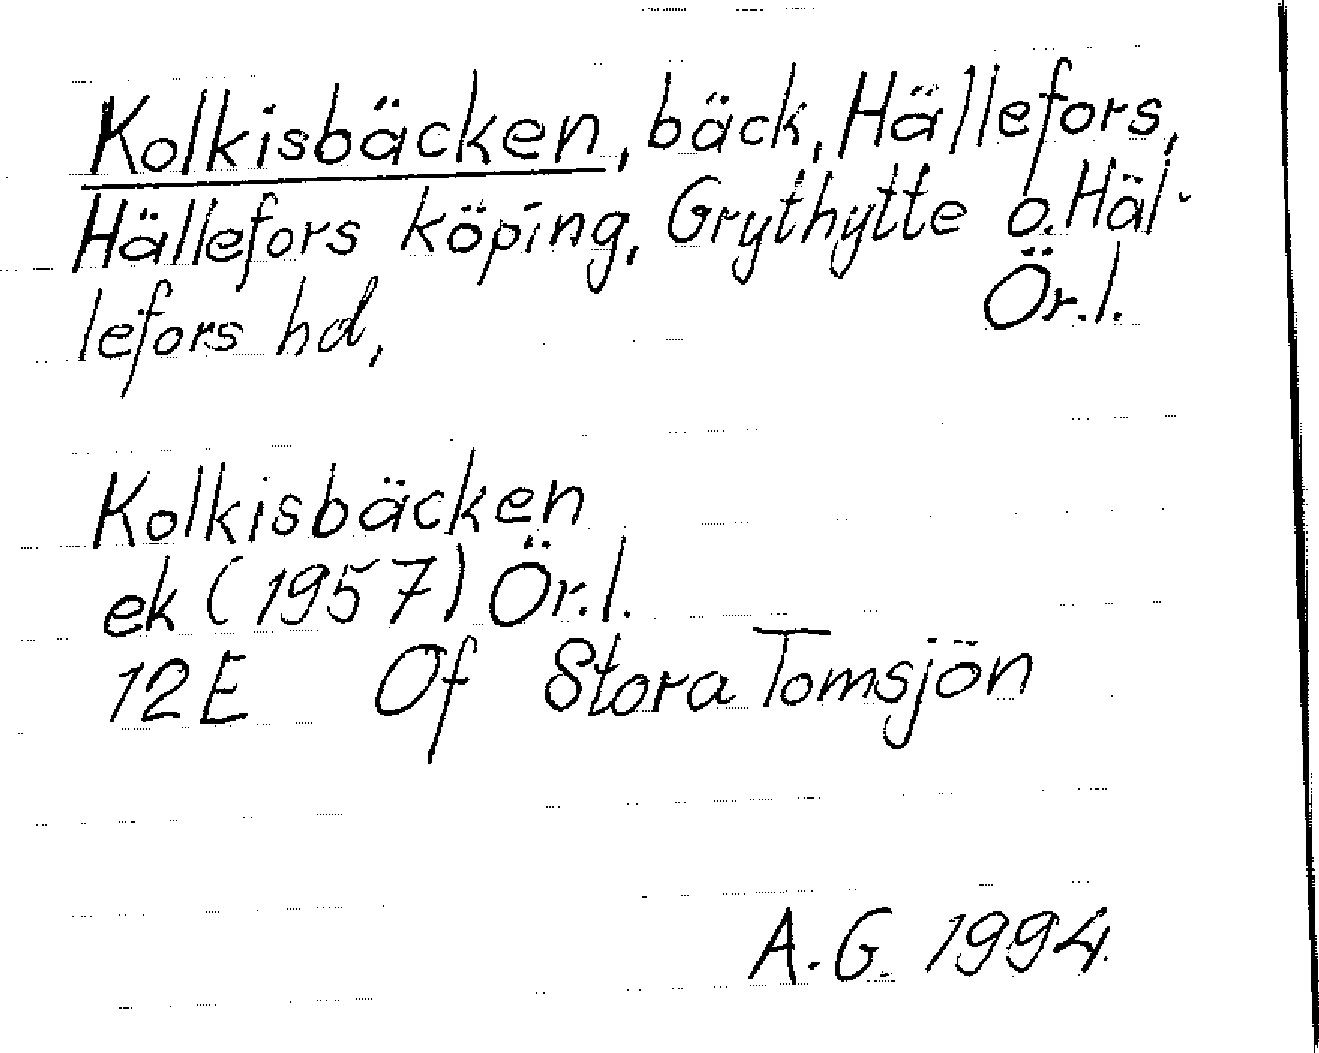 Kolkisbäcken, bäck, Hällefors,
Hällefors köping, Grythytte o. Häl-
lefors hd, Ör.l.
Kolkisbäcken
ek (1957) Ör.l.
12E Of Stora Tomsjön
A.G. 1994.